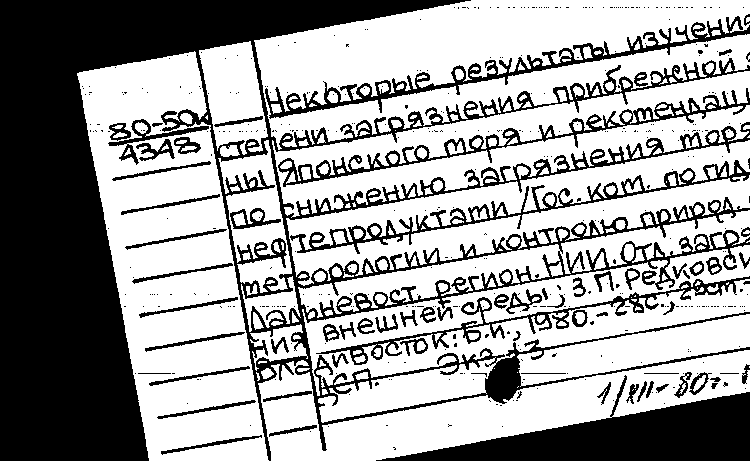 Некоторые результаты изучения
80-50к
4348
степени загрязнения прибрежной з
ны Японского моря и рекомендаци
по снижению загрязнения моря
нефтепродуктами / Гос. ком. по гид
метеорологии и контролю природ.
Дальневост. регион. НИИ. Отд. загря
ния внешней среды; З.П. Редковс
Владивосток: Б.и., 1980.-28с., 29см.-
ДСП. Экз. 3.
1/XII-80г.